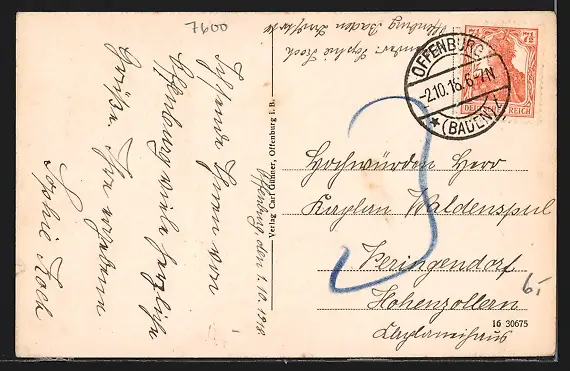 7600
Absender: Sophie Koch
Offenburg Baden Postkarte
Ich sende Ihnen von
Offenburg viele herzliche
Grüße. Ihre ergebene
Sophie Koch
Offenburg den 1.10.1918
Verlag Carl Günner, Offenburg i. B.
OFFENBURG
-2.10.18.6-7N
* (BADEN) 2
7½ 7½
DEUTSCHES REICH
3
Hochwürden Herr
Kaplan Waldenspul
Veringendorf
Hohenzollern
Kaplaneihaus
6,-
16 30675